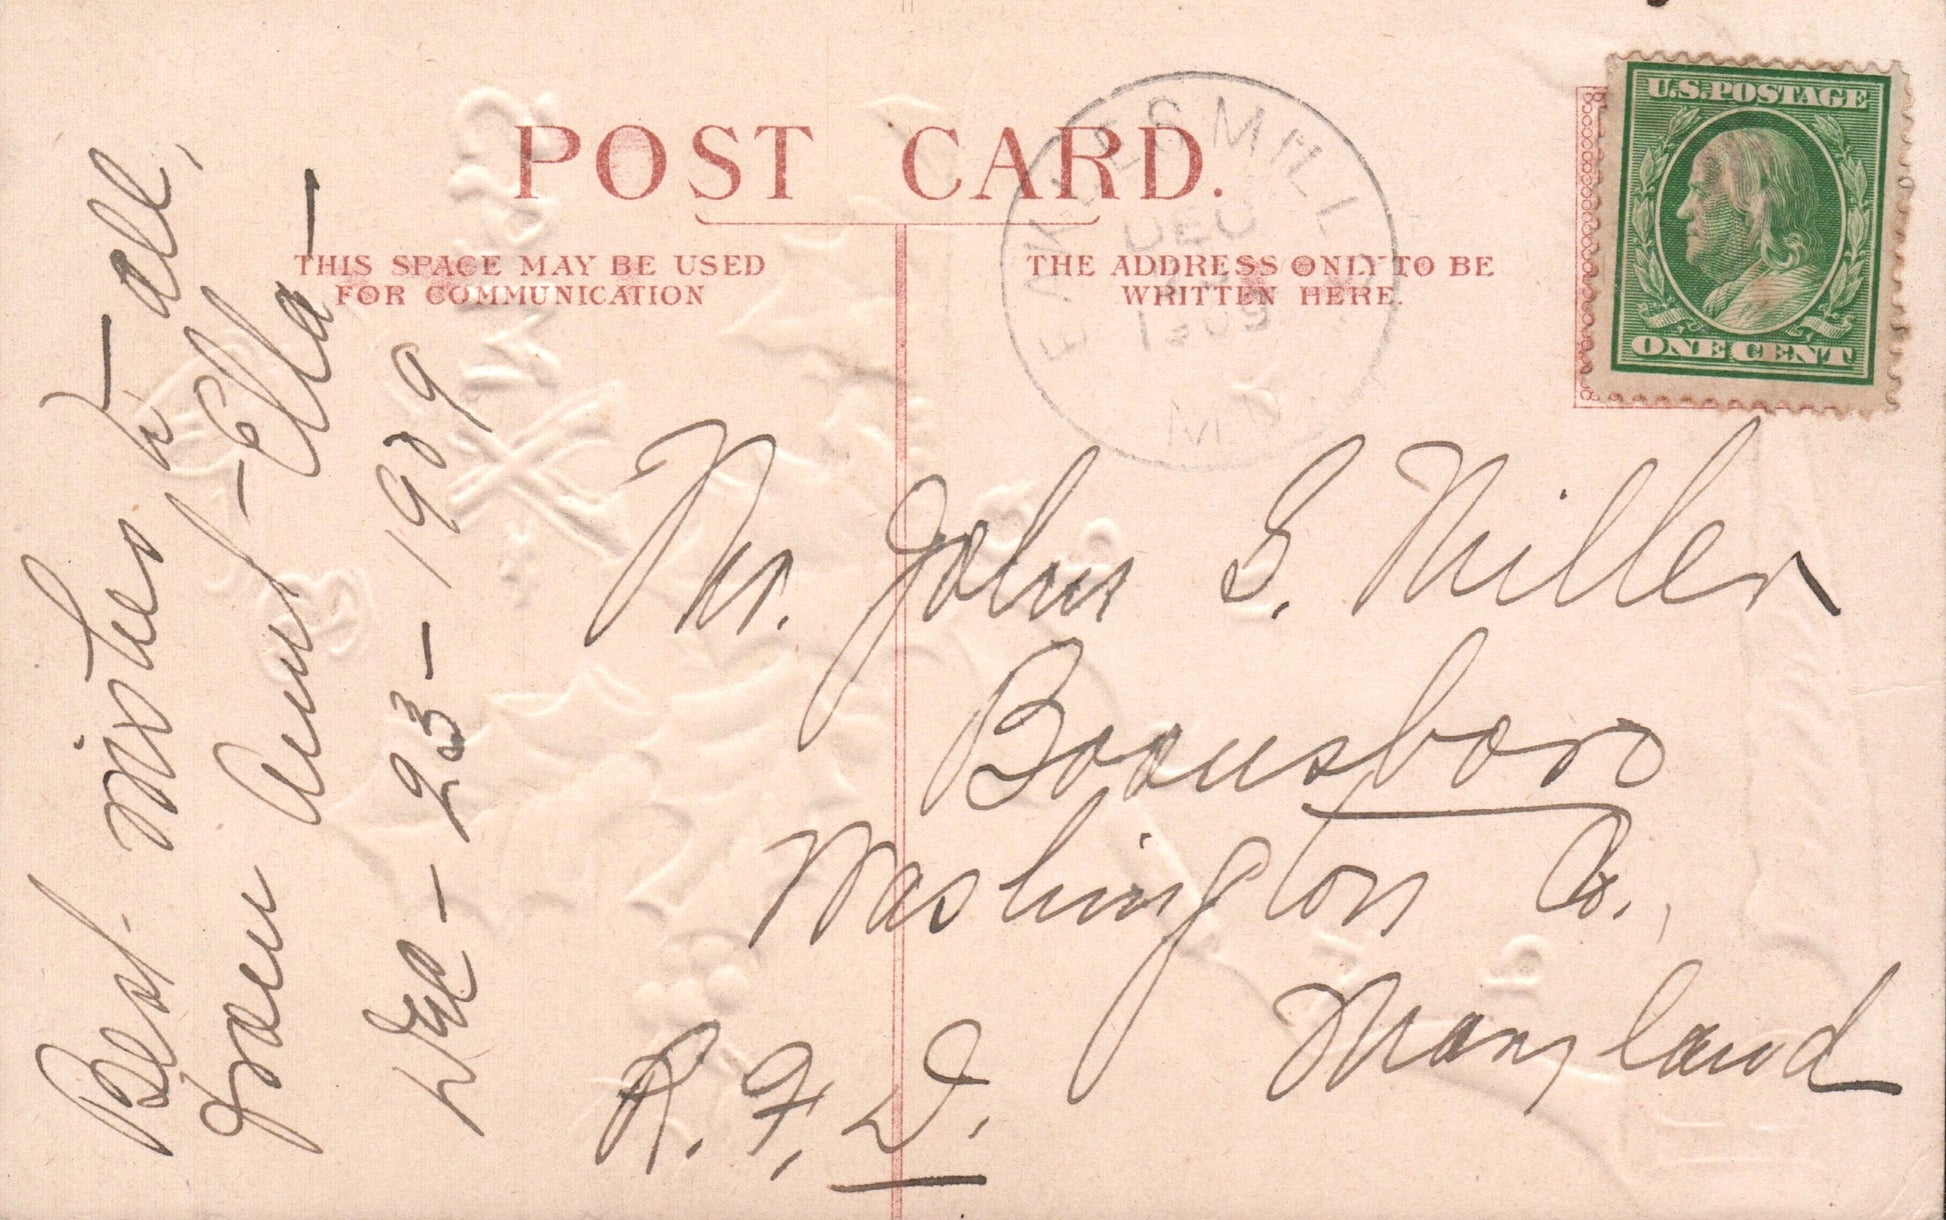 POST CARD.
THIS SPACE MAY BE USED
FOR COMMUNICATION
THE ADDRESS ONLY TO BE
WRITTEN HERE.
U.S. POSTAGE
ONE CENT
EAKLES MILL
DEC
1909
MD.
Best Wishes to all,
from Aunt Ella
Dec - 23 - 1909
Mr. John S. Miller
Boonsboro
Washington Co.
Maryland
R. F. D.